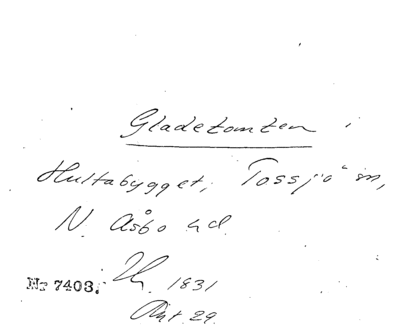 Gladetomten i
Hultabygget, Tossjö sn,
N. Åsbo hd.
Nr 7403. 1831
Akt 29